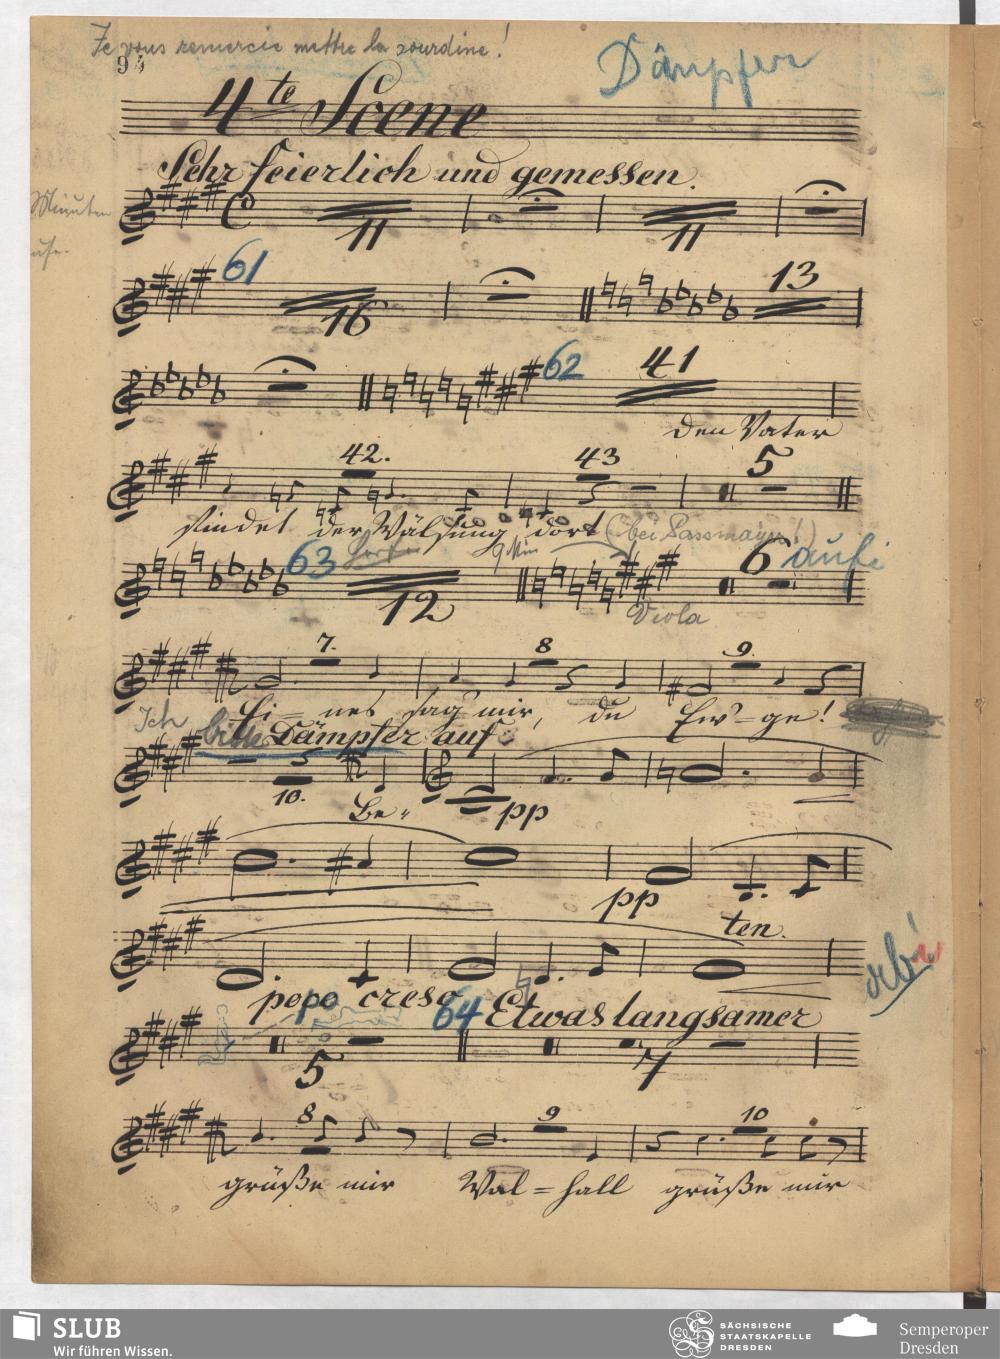 Je vous remercie mettre la sourdine!
94
Dämpfer
4te Scene
Sehr feierlich und gemessen.
Minuten
11 11
61
16 13
62
41
den Vater
42. 43 5
findet der Wälsung dort (bei Passmayer!)
63
12 6 aufi
Viola
7. 8 9.
Ei - nes sag' mir, du Ew'-ge!
Ich bitte Dämpfer auf
10. Be- pp
pp
ten.
popo cresc
abi
64 Etwas langsamer
5 7
8 9 10
grüße mir Wal-hall grüße mir
SLUB
Wir führen Wissen.
SÄCHSISCHE
STAATSKAPELLE
DRESDEN
Semperoper
Dresden